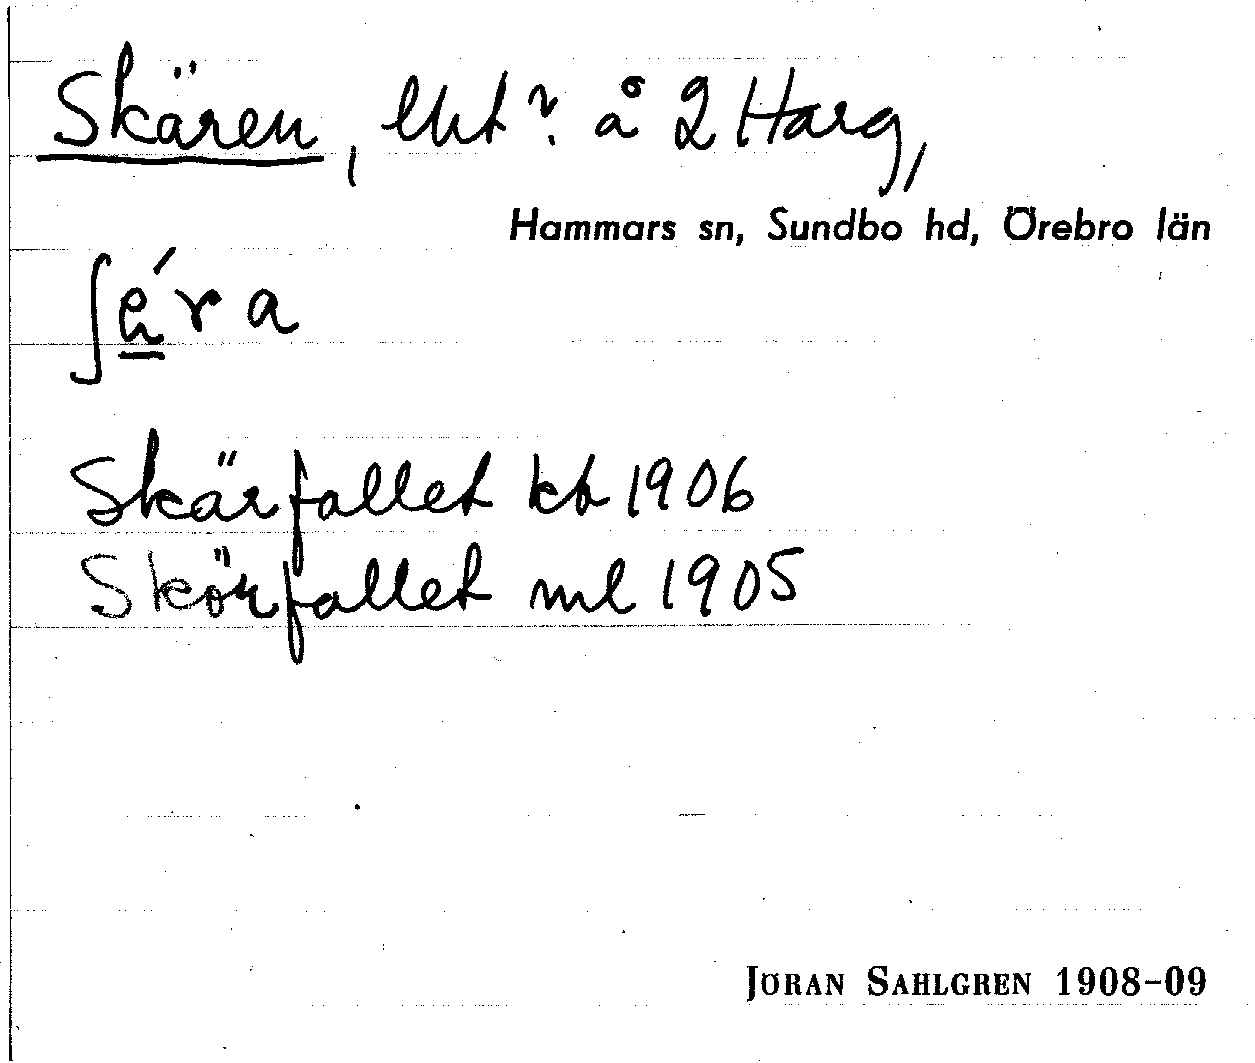 Skären, lht? å 2 Harg,
Hammars sn, Sundbo hd, Örebro län
ʃä́ra
Skärfallet kb 1906
Skörfallet ml 1905
JÖRAN SAHLGREN 1908-09